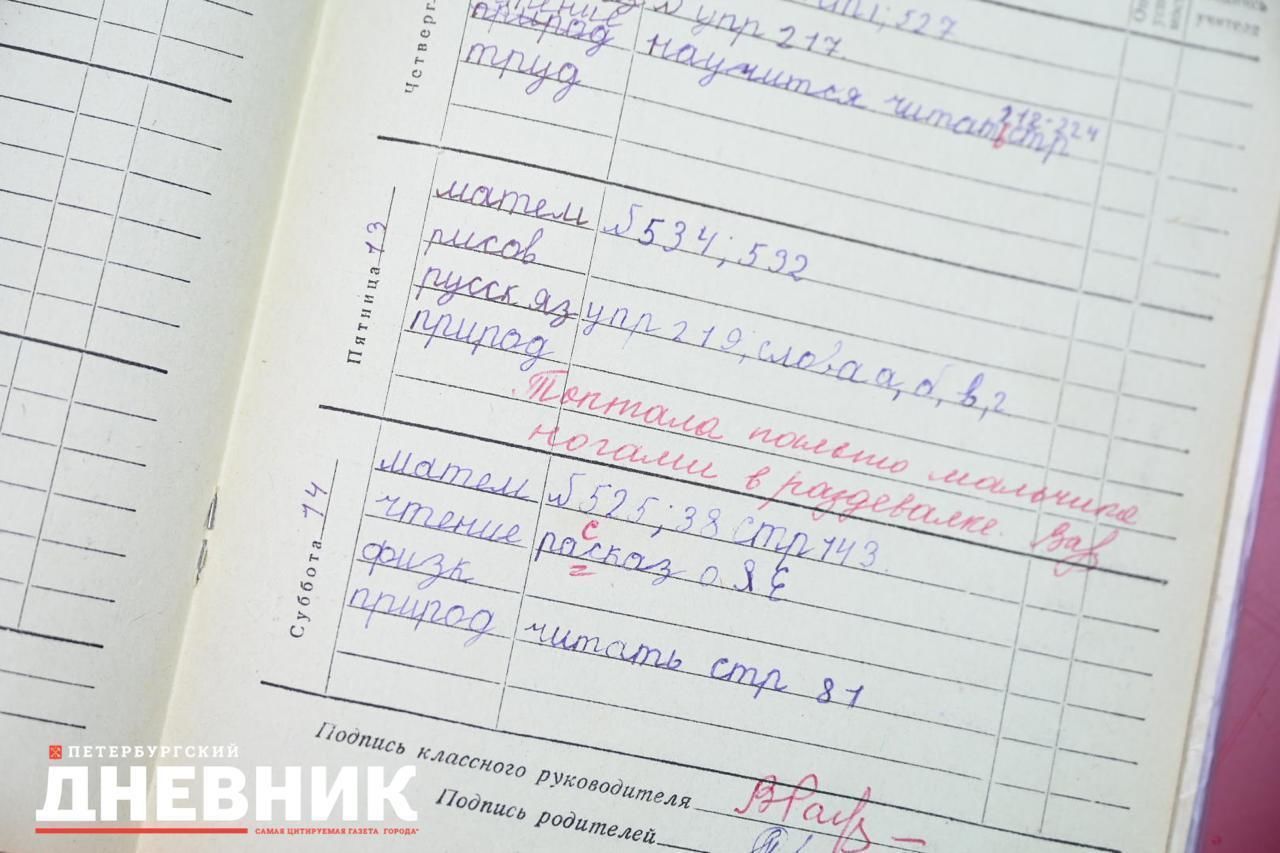 527
упр 217.
Четверг
природ научится читать стр 218-224
труд
Пятница 13
матем № 534; 592
рисов
русск яз упр 219, слова а, б, в, г
природ
Топтала пальто мальчика
ногами в раздевалке.
Суббота 14
матем № 525; 38 стр 143.
чтение расказ о Я
с
физк
природ читать стр 81
Подпись классного руководителя
Подпись родителей
учителя
ПЕТЕРБУРГСКИЙ
ДНЕВНИК
САМАЯ ЦИТИРУЕМАЯ ГАЗЕТА ГОРОДА*